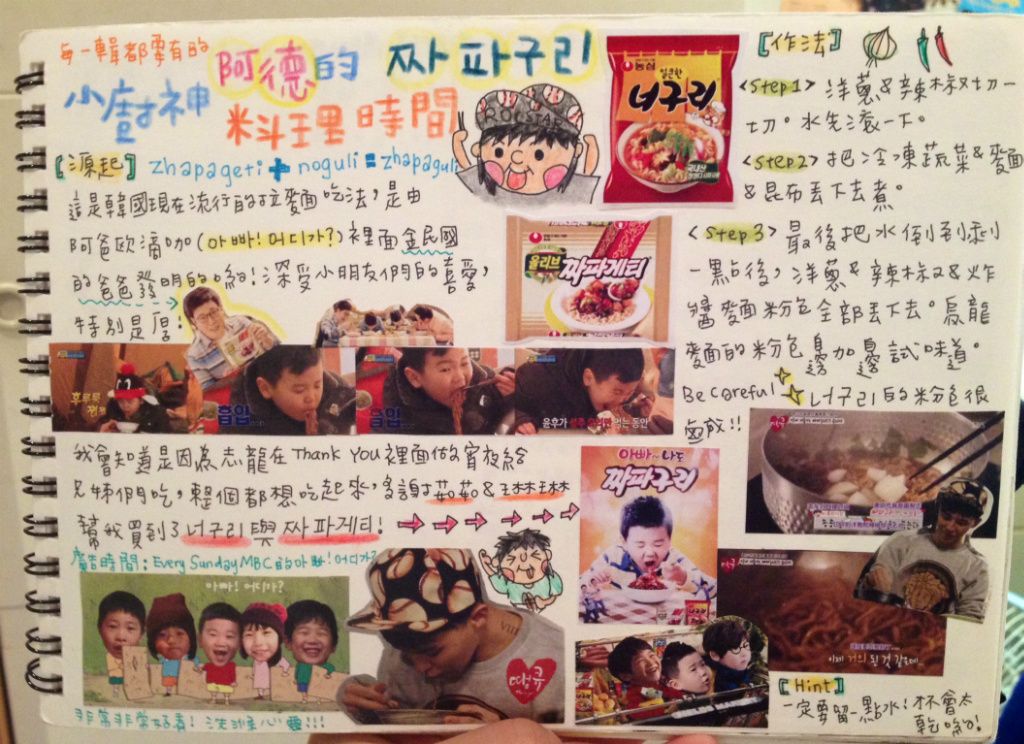 每一輯都要有的
小廚神
阿德的 짜파구리
料理時間
ROCSTAR
[源起] zhapageti + noguli = zhapaguli
這是韓國現在流行的拉麵吃法,是由
阿爸歐濟咖(아빠!어디가?)裡面金民國
的爸爸發明的喲!深受小朋友們的喜愛,
特別是厚:
농심
얼큰한
너구리
올리브
짜파게티
후루룩
흡입
흡입
윤후가
먹는 동안
我會知道是因為志龍在 Thank You 裡面做宵夜給
兄姊們吃,整個都想吃起來,多謝茹茹&琳琳
幫我買到了너구리與짜파게티!
廣告時間:Every Sunday MBC的아빠!어디가?
아빠! 어디가?
非常非常好看!洗滌心靈!!!
VIII
땡큐
아빠~나도
짜파구리
[作法]
<Step1> 洋蔥&辣椒切一
切。水先滾一下。
<Step2> 把冷凍蔬菜&麵
&昆布丟下去煮。
<Step3> 最後把水倒到剩
一點後,洋蔥&辣椒&炸
醬麵粉包全部丟下去。烏龍
麵的粉包邊加邊試味道。
Be Careful 너구리的粉包很
鹹!!
이제 거의 된 것 같은데
[Hint]
一定要留一點水!才不會太
乾喲!